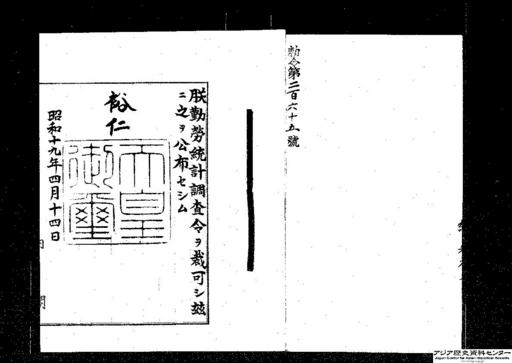 勅令第二百六十五號
朕勤勞統計調査令ヲ裁可シ茲
ニ之ヲ公布セシム
裕仁
天皇御璽
昭和十九年四月十四日
内閣
アジア歴史資料センター
Japan Center for Asian Historical Records